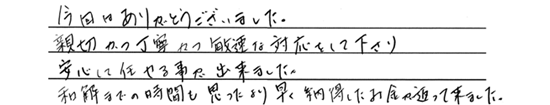 今回はありがとうございました。
親切かつ丁寧かつ敏速な対応をして下さり
安心して任せる事が出来ました。
和解までの時間も思ったより早く納得したお金が返って来ました。